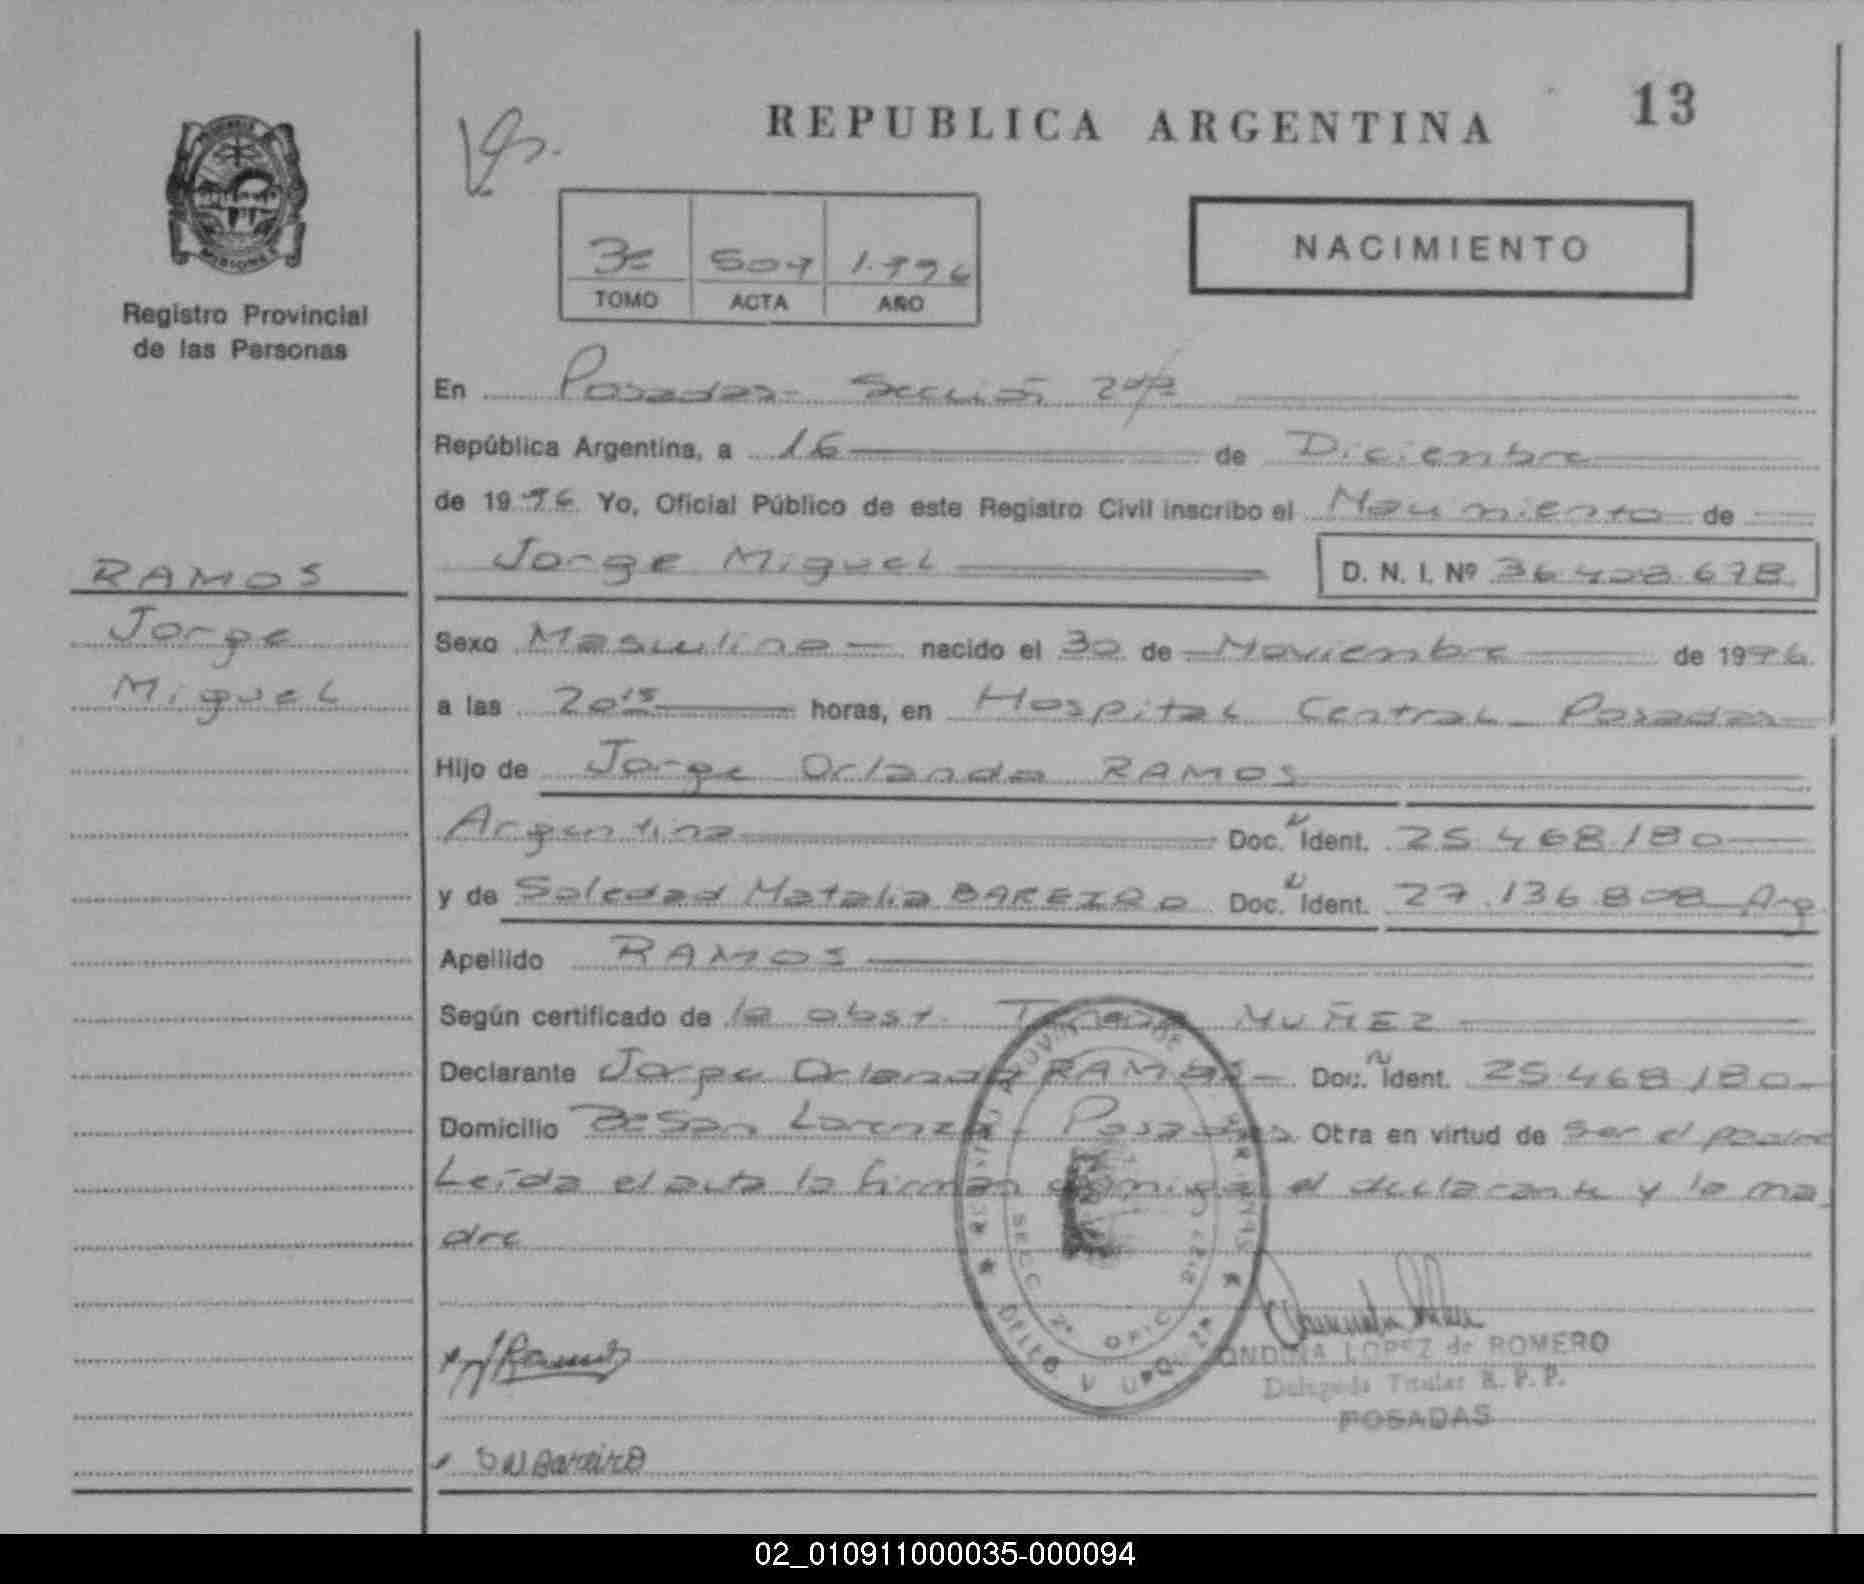 REPUBLICA ARGENTINA 13
NACIMIENTO
3º 507 1.996
TOMO ACTA AÑO
Registro Provincial
de las Personas
En Posadas - Sección 2da
República Argentina, a 16 de Diciembre
de 1996 Yo, Oficial Público de este Registro Civil inscribo el Nacimiento de
Jorge Miguel D. N. I. Nº 36.408.678
RAMOS
Jorge
Miguel
Sexo Masculino nacido el 30 de Noviembre de 1996
a las 20 15 horas, en Hospital Central - Posadas
Hijo de Jorge Orlando RAMOS
Argentina Doc. N Ident. 25.468.180
y de Soledad Natalia BAREIRO Doc. N Ident. 27.136.808 Arg
Apellido RAMOS
Según certificado de la obst. NUÑEZ
Declarante Jorge Orlando RAMOS - Doc. N Ident. 25.468.180
Domicilio Bº San Lorenzo - Posadas Otra en virtud de ser el padre
Leída el acta la firman conmigo el declarante y la ma
dre
ONDINA LOPEZ de ROMERO
Delegada Titular R. P. P.
POSADAS
SECC 2ª OFIC
S N Bareiro
02_010911000035-000094